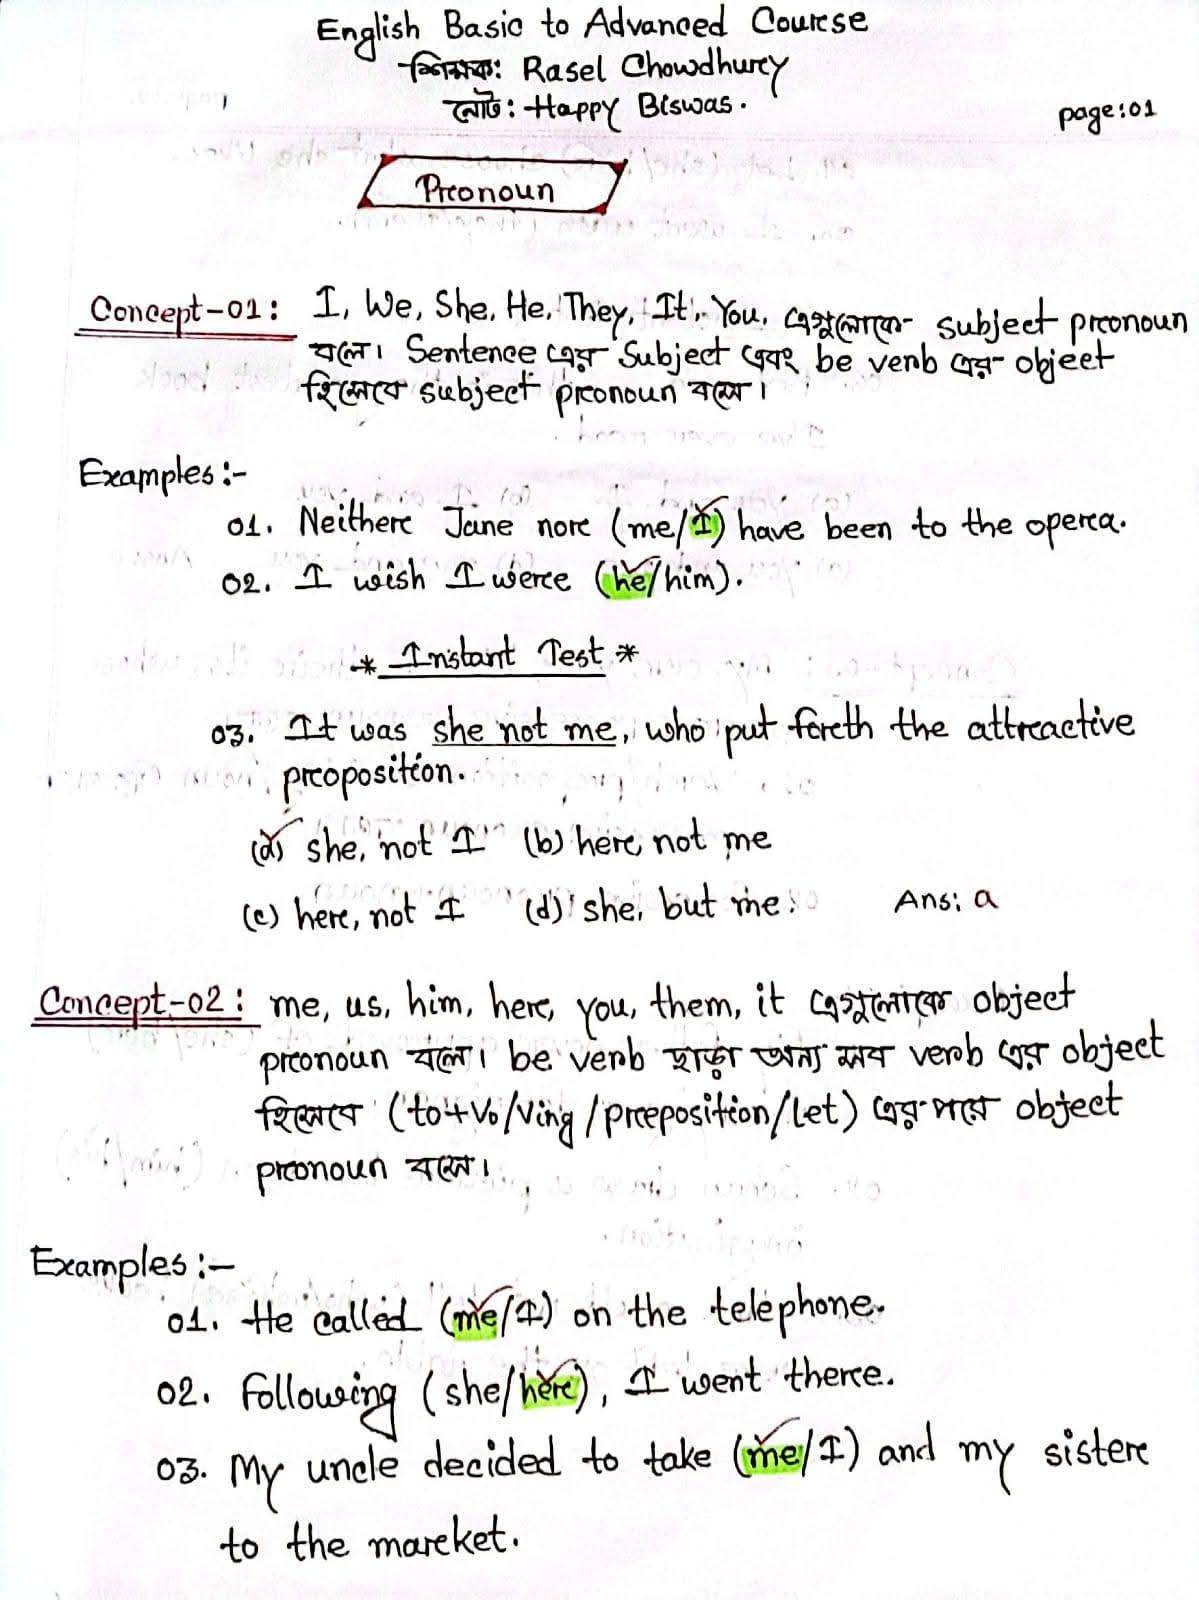 English Basic to Advanced Course
শিক্ষক: Rasel Chowdhury
নোট: Happy Biswas.
page:01
Pronoun
Concept-01: I, We, She, He, They, It, You, এগুলোকে subject pronoun
বলে। Sentence এর Subject এবং be verb এর object
হিসেবে subject pronoun বসে।
Examples:-
01. Neither Jane nor (me/I) have been to the opera.
02. I wish I were (he/him).
* Instant Test *
03. It was she not me, who put forth the attractive
proposition.
(a) she, not I (b) her, not me
(c) her, not I (d) she, but me. Ans: a
Concept-02: me, us, him, her, you, them, it এগুলোকে object
pronoun বলে। be verb ছাড়া অন্য সব verb এর object
হিসেবে (to+V0/Ving/preposition/Let) এর পরে object
pronoun বসে।
Examples:-
01. He called (me/I) on the telephone.
02. Following (she/her), I went there.
03. My uncle decided to take (me/I) and my sister
to the market.